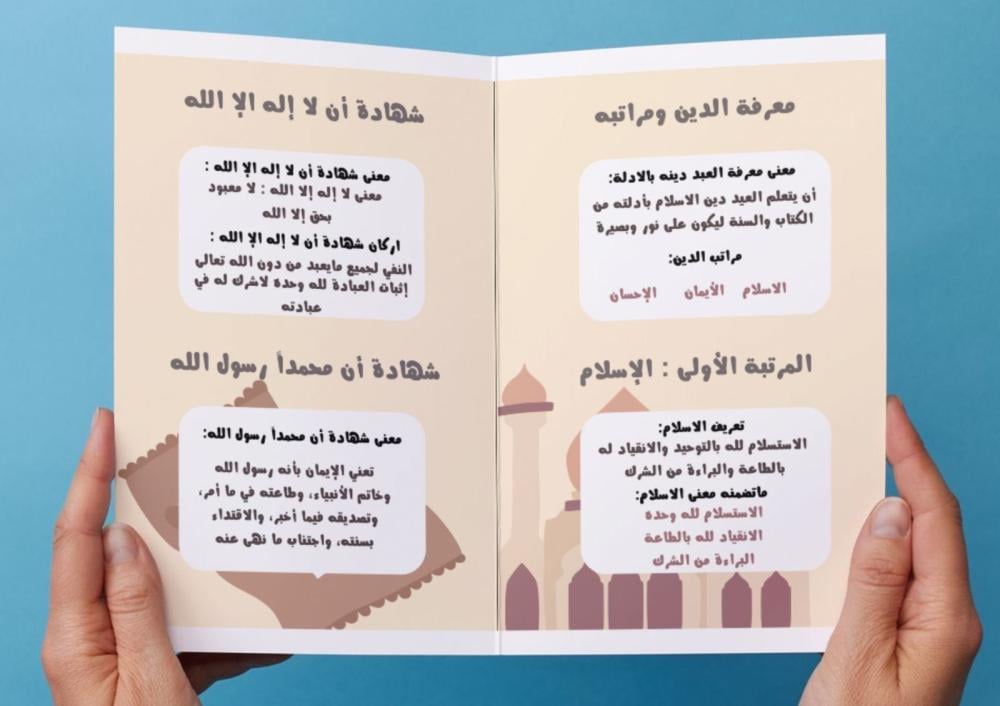 معرفة الدين ومراتبه
معنى معرفة العبد دينه بالادلة:
أن يتعلم العبد دين الاسلام بأدلته من
الكتاب والسنة ليكون على نور وبصيرة
مراتب الدين:
الاسلام الأيمان الإحسان
المرتبة الأولى : الإسلام
تعريف الاسلام:
الاستسلام لله بالتوحيد والانقياد له
بالطاعة والبراءة من الشرك
ماتضمنه معنى الاسلام:
الاستسلام لله وحدة
الانقياد لله بالطاعة
البراءة من الشرك
شهادة أن لا إله الإ الله
معنى شهادة أن لا إله الإ الله :
معنى لا إله إلا الله : لا معبود
بحق إلا الله
اركان شهادة أن لا إله الإ الله :
النفي لجميع مايعبد من دون الله تعالى
إثبات العبادة لله وحدة لاشرك له في
عبادته
شهادة أن محمداً رسول الله
معنى شهادة أن محمداً رسول الله:
تعني الإيمان بأنه رسول الله
وخاتم الأنبياء، وطاعته في ما أمر،
وتصديقه فيما أخبر، والاقتداء
بسنته، واجتناب ما نهى عنه